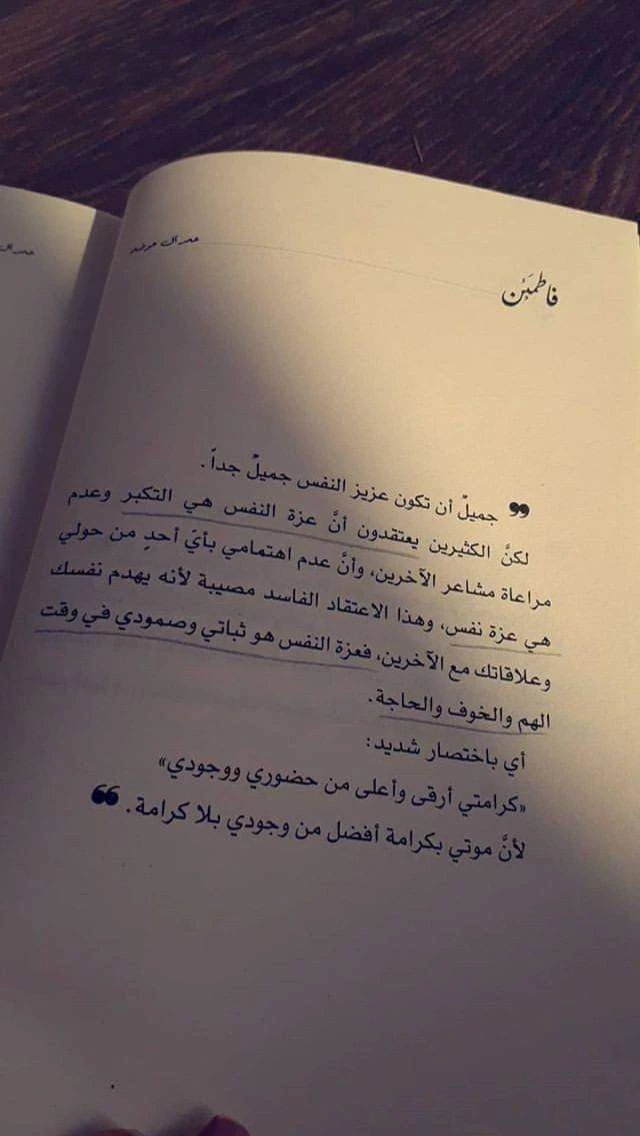 فاطمئن
❞ جميلٌ أن تكون عزيز النفس جميلٌ جداً.
لكنَّ الكثيرين يعتقدون أنَّ عزة النفس هي التكبر وعدم
مراعاة مشاعر الآخرين، وأنَّ عدم اهتمامي بأيّ أحدٍ من حولي
هي عزة نفس، وهذا الاعتقاد الفاسد مصيبة لأنه يهدم نفسك
وعلاقاتك مع الآخرين، فعزة النفس هو ثباتي وصمودي في وقت
الهم والخوف والحاجة.
أي باختصار شديد:
«كرامتي أرقى وأعلى من حضوري ووجودي»
لأنَّ موتي بكرامة أفضل من وجودي بلا كرامة. ❝